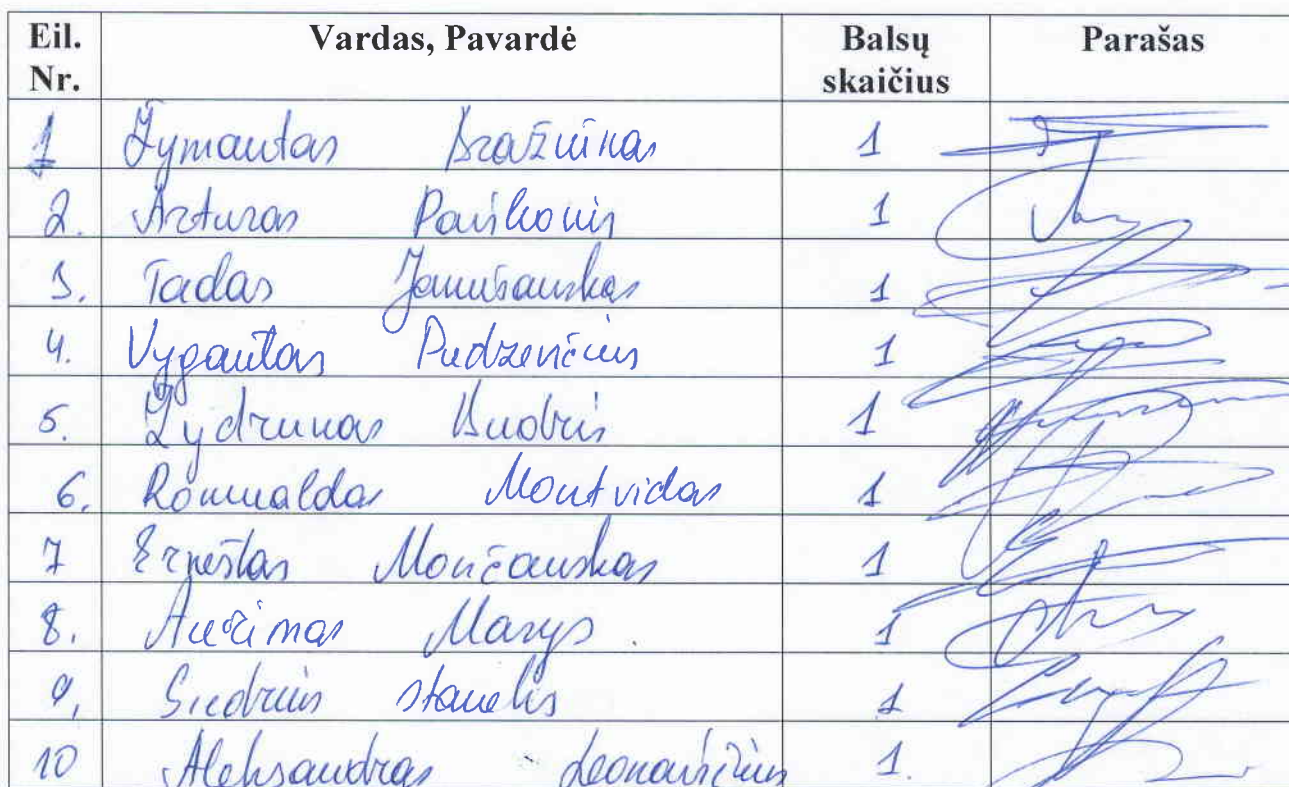 Eil. Nr. Vardas, Pavardė Balsų skaičius Parašas
1 Žymantas Bražiūnas 1
2. Arturas Paviłkonis 1
3. Tadas Janušauskas 1
4. Vygantas Pudzevičius 1
5. Žydrunas Budris 1
6. Romualdas Montvidas 1
7 Ernestas Mončauskas 1
8. Aurimas Marys. 1
9. Giedrius Stanelis 1
10 Aleksandras Leonavičius 1.